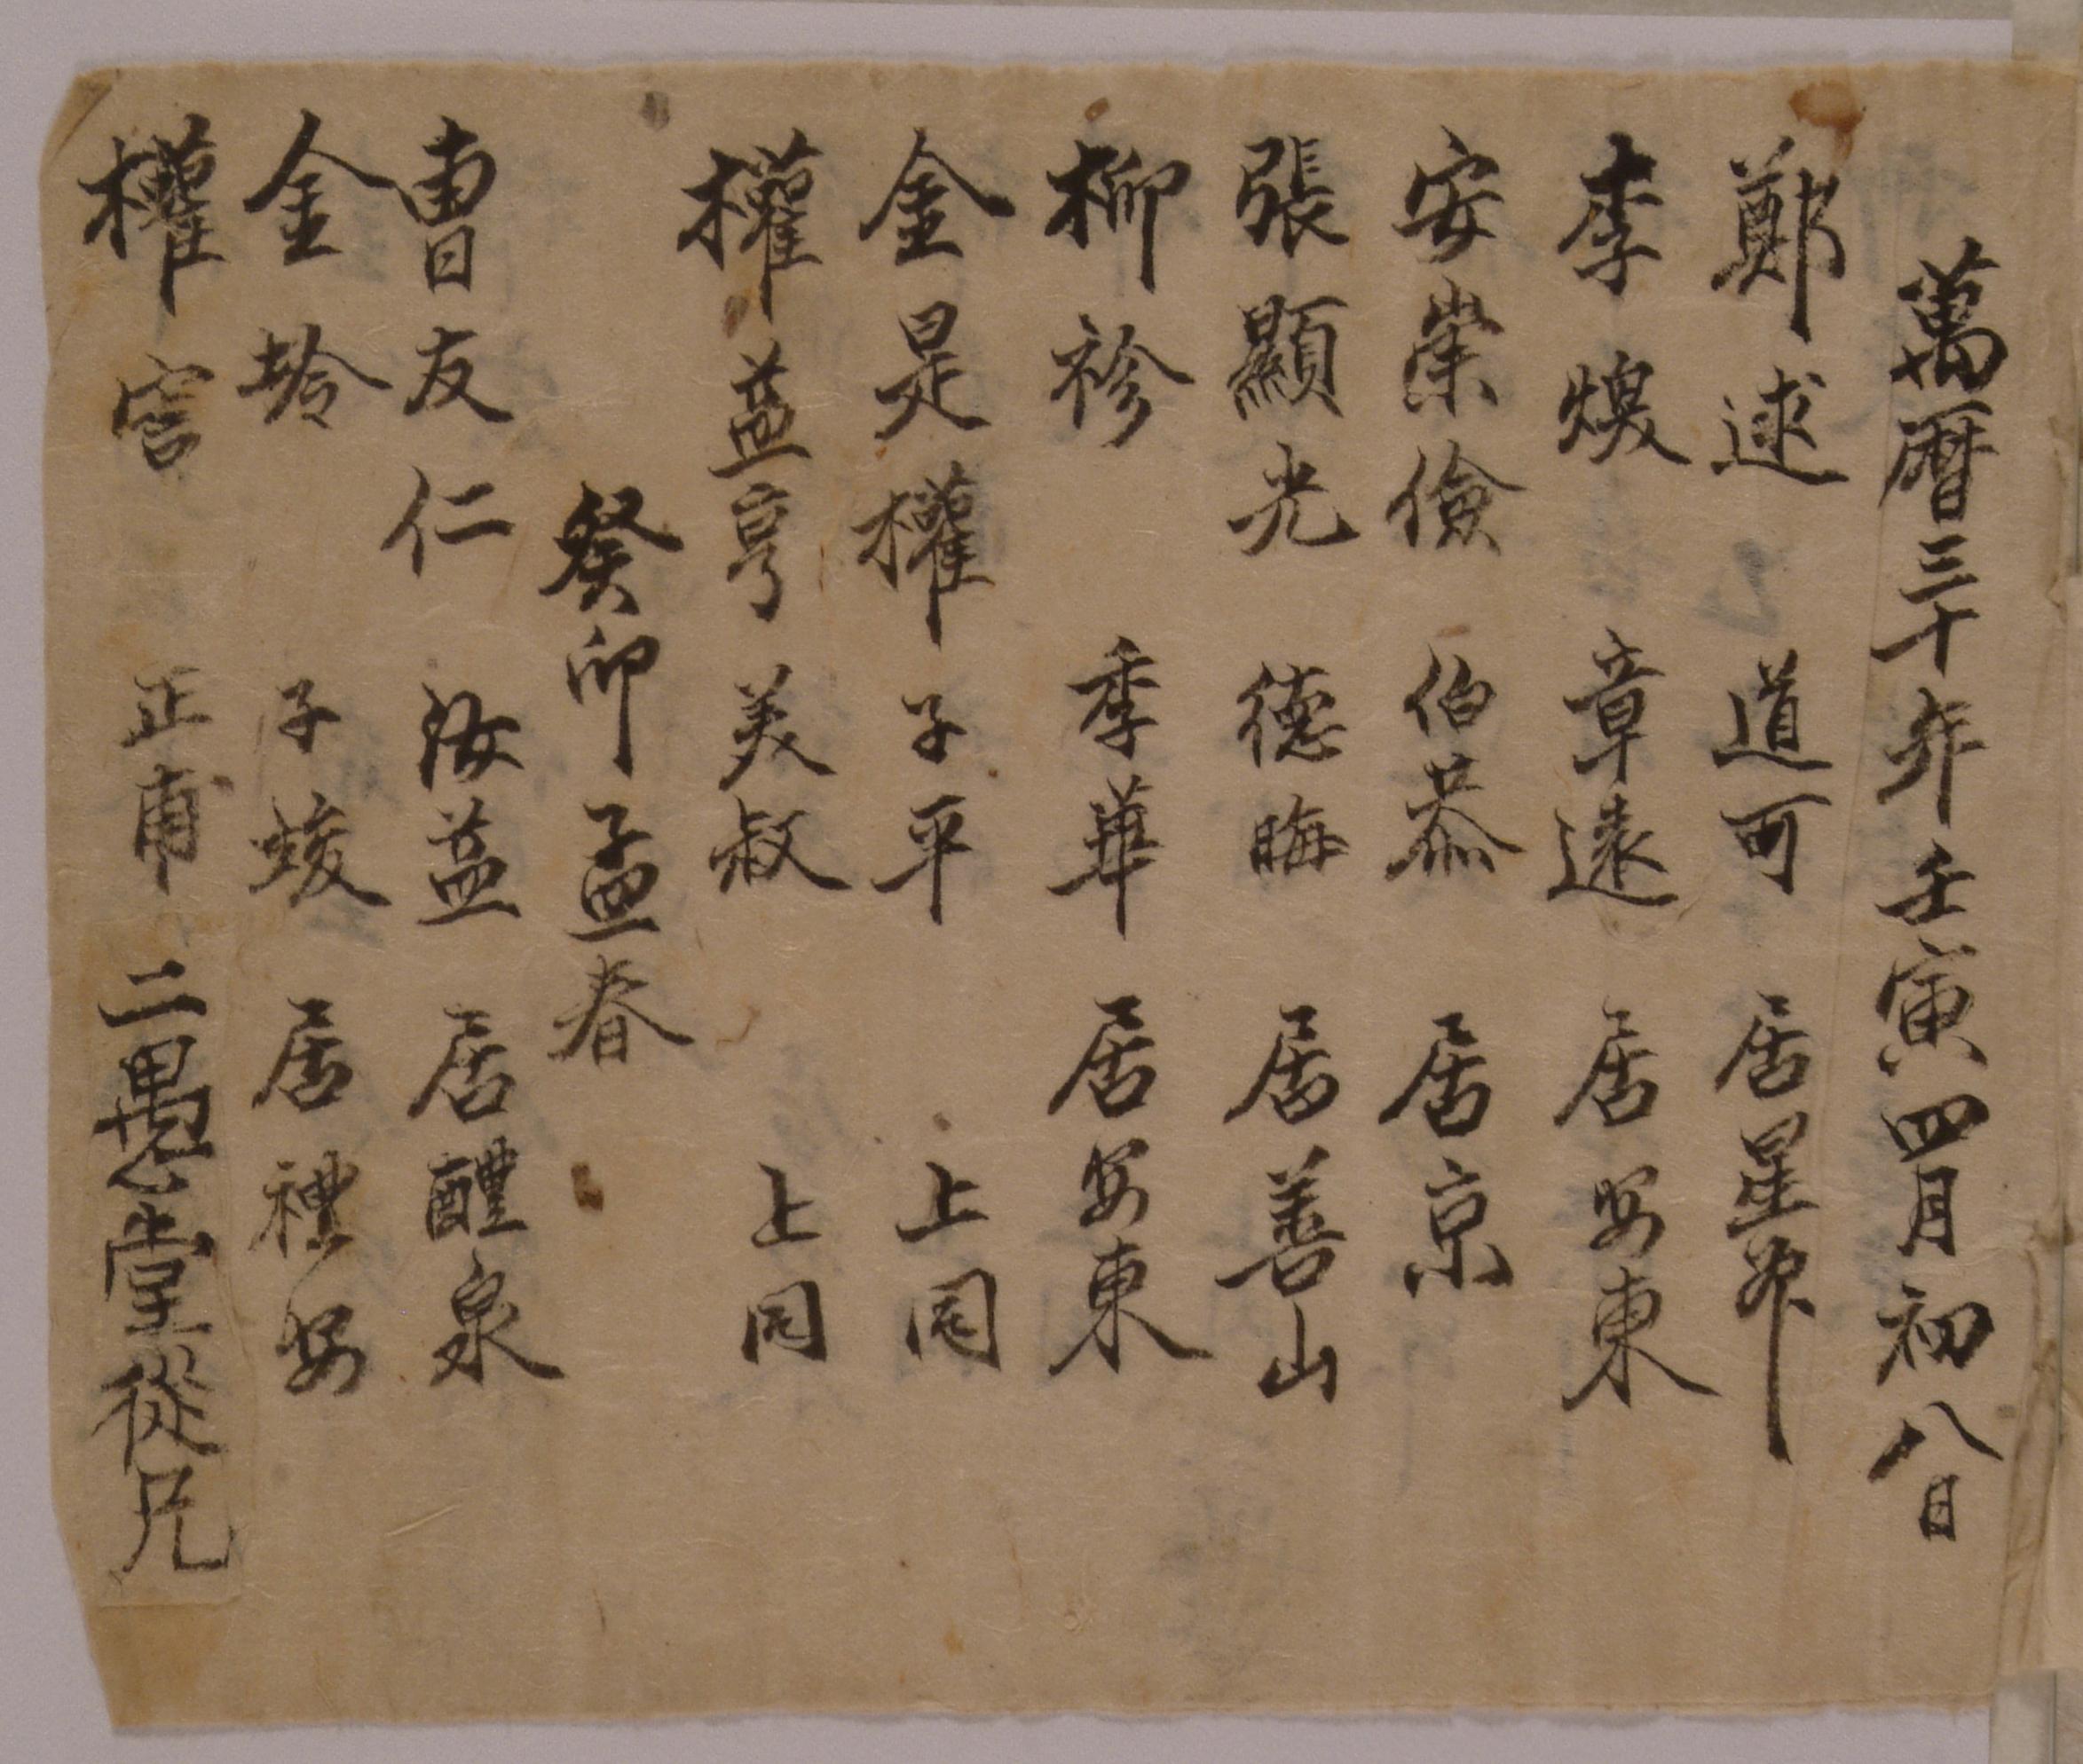 萬暦三十年壬寅四月初八日
鄭逑 道可 居星州
李煥 章遠 居安東
安崇儉 伯恭 居京
張顯光 德晦 居善山
柳袗 季華 居安東
金是權 子平 上同
權益亨 美叔 上同
癸卯孟春
曺友仁 汝益 居醴泉
金坽 子峻 居禮安
權 正甫 二愚堂從兄